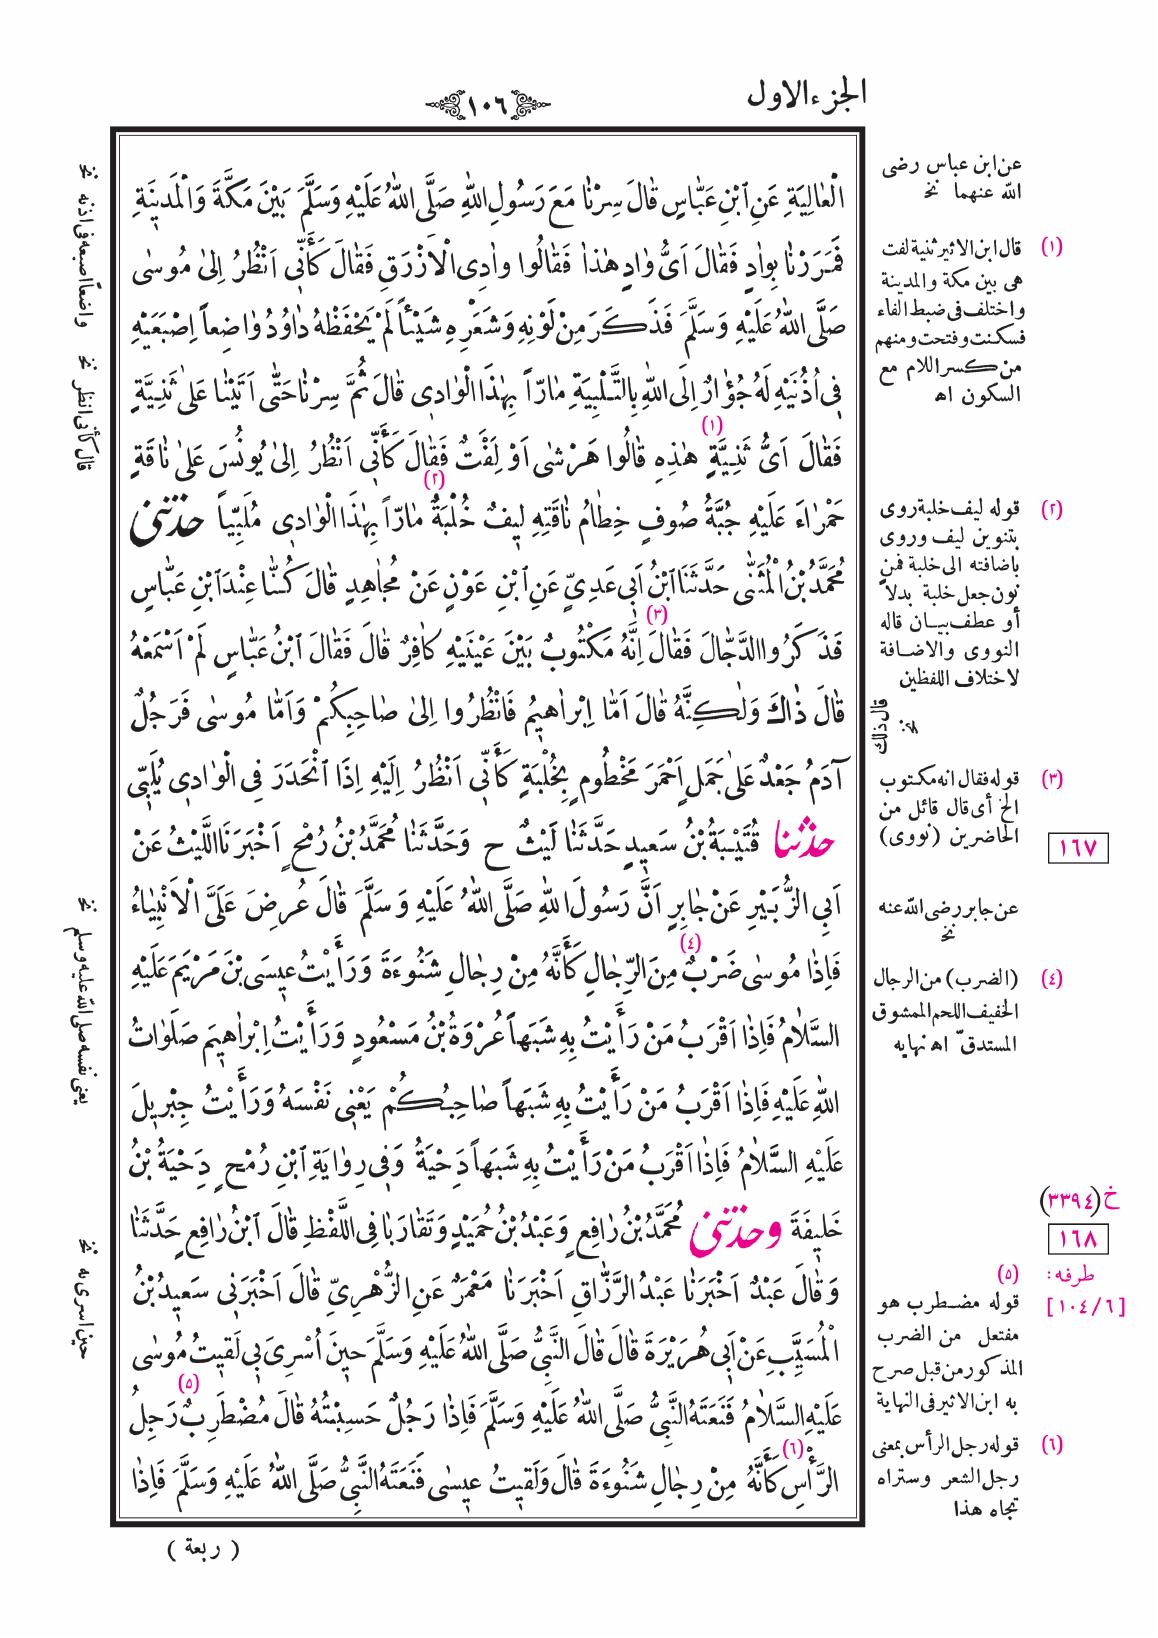 الجزء الاول
١٠٦
الْعَالِيَةِ عَنِ ابْنِ عَبَّاسٍ قَالَ سِرْنَا مَعَ رَسُولِ اللهِ صَلَّى اللهُ عَلَيْهِ وَسَلَّمَ بَيْنَ مَكَّةَ وَالْمَدِينَةِ
فَمَرَرْنَا بِوَادٍ فَقَالَ اَىُّ وَادٍ هٰذَا فَقَالُوا وَادِى الْاَزْرَقِ فَقَالَ كَأَنِّى اَنْظُرُ اِلَى مُوسَى
صَلَّى اللهُ عَلَيْهِ وَسَلَّمَ فَذَكَرَ مِنْ لَوْنِهِ وَشَعَرِهِ شَيْئاً لَمْ يَحْفَظْهُ دَاوُدُ وَاضِعاً اِصْبَعَيْهِ
فِى اُذُنَيْهِ لَهُ جُؤَارٌ اِلَى اللهِ بِالتَّلْبِيَةِ مَارّاً بِهٰذَا الْوَادِى قَالَ ثُمَّ سِرْنَا حَتَّى اَتَيْنَا عَلَى ثَنِيَّةٍ
فَقَالَ اَىُّ ثَنِيَّةٍ (١) هٰذِهِ قَالُوا هَرْشَى اَوْ لِفْتٌ فَقَالَ كَأَنِّى اَنْظُرُ اِلَى يُونُسَ عَلَى نَاقَةٍ
حَمْرَاءَ عَلَيْهِ جُبَّةُ صُوفٍ خِطَامُ نَاقَتِهِ لِيفٌ خُلْبَةٌ (٢) مَارّاً بِهٰذَا الْوَادِى مُلَبِّياً حَدَّثَنِى
مُحَمَّدُ بْنُ الْمُثَنَّى حَدَّثَنَا ابْنُ اَبِى عَدِىٍّ عَنِ ابْنِ عَوْنٍ عَنْ مُجَاهِدٍ قَالَ كُنَّا عِنْدَ ابْنِ عَبَّاسٍ
فَذَكَرُوا الدَّجَّالَ فَقَالَ (٣) اِنَّهُ مَكْتُوبٌ بَيْنَ عَيْنَيْهِ كَافِرٌ قَالَ فَقَالَ ابْنُ عَبَّاسٍ لَمْ اَسْمَعْهُ
قَالَ ذَاكَ وَلٰكِنَّهُ قَالَ اَمَّا اِبْرَاهِيمُ فَانْظُرُوا اِلَى صَاحِبِكُمْ وَاَمَّا مُوسَى فَرَجُلٌ
آدَمُ جَعْدٌ عَلَى جَمَلٍ اَحْمَرَ مَخْطُومٍ بِخُلْبَةٍ كَأَنِّى اَنْظُرُ اِلَيْهِ اِذَا انْحَدَرَ فِى الْوَادِى يُلَبِّى
حَدَّثَنَا قُتَيْبَةُ بْنُ سَعِيدٍ حَدَّثَنَا لَيْثٌ ح وَحَدَّثَنَا مُحَمَّدُ بْنُ رُمْحٍ اَخْبَرَنَا اللَّيْثُ عَنْ
اَبِى الزُّبَيْرِ عَنْ جَابِرٍ اَنَّ رَسُولَ اللهِ صَلَّى اللهُ عَلَيْهِ وَسَلَّمَ قَالَ عُرِضَ عَلَىَّ الْاَنْبِيَاءُ
فَاِذَا مُوسَى ضَرْبٌ (٤) مِنَ الرِّجَالِ كَأَنَّهُ مِنْ رِجَالِ شَنُوءَةَ وَرَأَيْتُ عِيسَى بْنَ مَرْيَمَ عَلَيْهِ
السَّلَامُ فَاِذَا اَقْرَبُ مَنْ رَأَيْتُ بِهِ شَبَهاً عُرْوَةُ بْنُ مَسْعُودٍ وَرَأَيْتُ اِبْرَاهِيمَ صَلَوَاتُ
اللهِ عَلَيْهِ فَاِذَا اَقْرَبُ مَنْ رَأَيْتُ بِهِ شَبَهاً صَاحِبُكُمْ يَعْنِى نَفْسَهُ وَرَأَيْتُ جِبْرِيلَ
عَلَيْهِ السَّلَامُ فَاِذَا اَقْرَبُ مَنْ رَأَيْتُ بِهِ شَبَهاً دَحْيَةُ وَفِى رِوَايَةِ ابْنِ رُمْحٍ دَحْيَةُ بْنُ
خَلِيفَةَ وحَدَّثَنِى مُحَمَّدُ بْنُ رَافِعٍ وَعَبْدُ بْنُ حُمَيْدٍ وَتَقَارَبَا فِى اللَّفْظِ قَالَ ابْنُ رَافِعٍ حَدَّثَنَا
وَقَالَ عَبْدٌ اَخْبَرَنَا عَبْدُ الرَّزَّاقِ اَخْبَرَنَا مَعْمَرٌ عَنِ الزُّهْرِىِّ قَالَ اَخْبَرَنِى سَعِيدُ بْنُ
الْمُسَيَّبِ عَنْ اَبِى هُرَيْرَةَ قَالَ قَالَ النَّبِىُّ صَلَّى اللهُ عَلَيْهِ وَسَلَّمَ حِينَ اُسْرِىَ بِى لَقِيتُ مُوسَى
عَلَيْهِ السَّلَامُ فَنَعَتَهُ النَّبِىُّ صَلَّى اللهُ عَلَيْهِ وَسَلَّمَ فَاِذَا رَجُلٌ حَسِبْتُهُ قَالَ مُضْطَرِبٌ (٥) رَجِلُ
الرَّأْسِ (٦) كَأَنَّهُ مِنْ رِجَالِ شَنُوءَةَ قَالَ وَلَقِيتُ عِيسَى فَنَعَتَهُ النَّبِىُّ صَلَّى اللهُ عَلَيْهِ وَسَلَّمَ فَاِذَا
( ربعة )
عن ابن عباس رضى
الله عنهما نخ
(١) قال ابن الاثير ثنية لفت
هى بين مكة والمدينة
واختلف فى ضبط الفاء
فسكنت وفتحت ومنهم
من كسر اللام مع
السكون اه
(٢) قوله ليف خلبة روى
بتنوين ليف وروى
باضافته الى خلبة فمن
نون جعل خلبة بدلاً
أو عطف بيان قاله
النووى والاضافة
لاختلاف اللفظين
قال ذلك نخ
(٣) قوله فقال انه مكتوب
الخ أى قال قائل من
الحاضرين (نووى)
١٦٧
عن جابر رضى الله عنه
نخ
(٤) (الضرب) من الرجال
الخفيف اللحم الممشوق
المستدقّ اه نهايه
خ (٣٣٩٤)
١٦٨
طرفه: (٥)
[١٠٤/٦]
قوله مضطرب هو
مفتعل من الضرب
المذكور من قبل صرح
به ابن الاثير فى النهاية
(٦) قوله رجل الرأس بمعنى
رجل الشعر وستراه
تجاه هذا
واضعاً اصبعه فى اذنه نخ
قال كأنى انظر نخ
يعنى نفسه صلى الله عليه وسلم نخ
حين اسرى به نخ